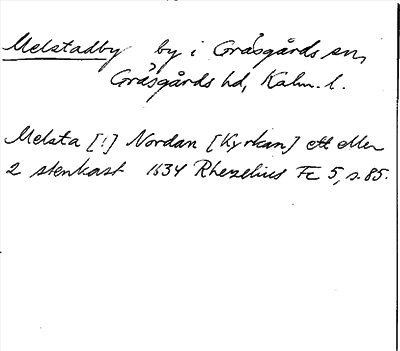 Melstadby by i Gräsgårds sn,
Gräsgårds hd, Kalm. l.
Melsta [!] Nordan [Kyrkan] ett eller
2 stenkast 1634 Rhezelius Fc 5, s. 85.